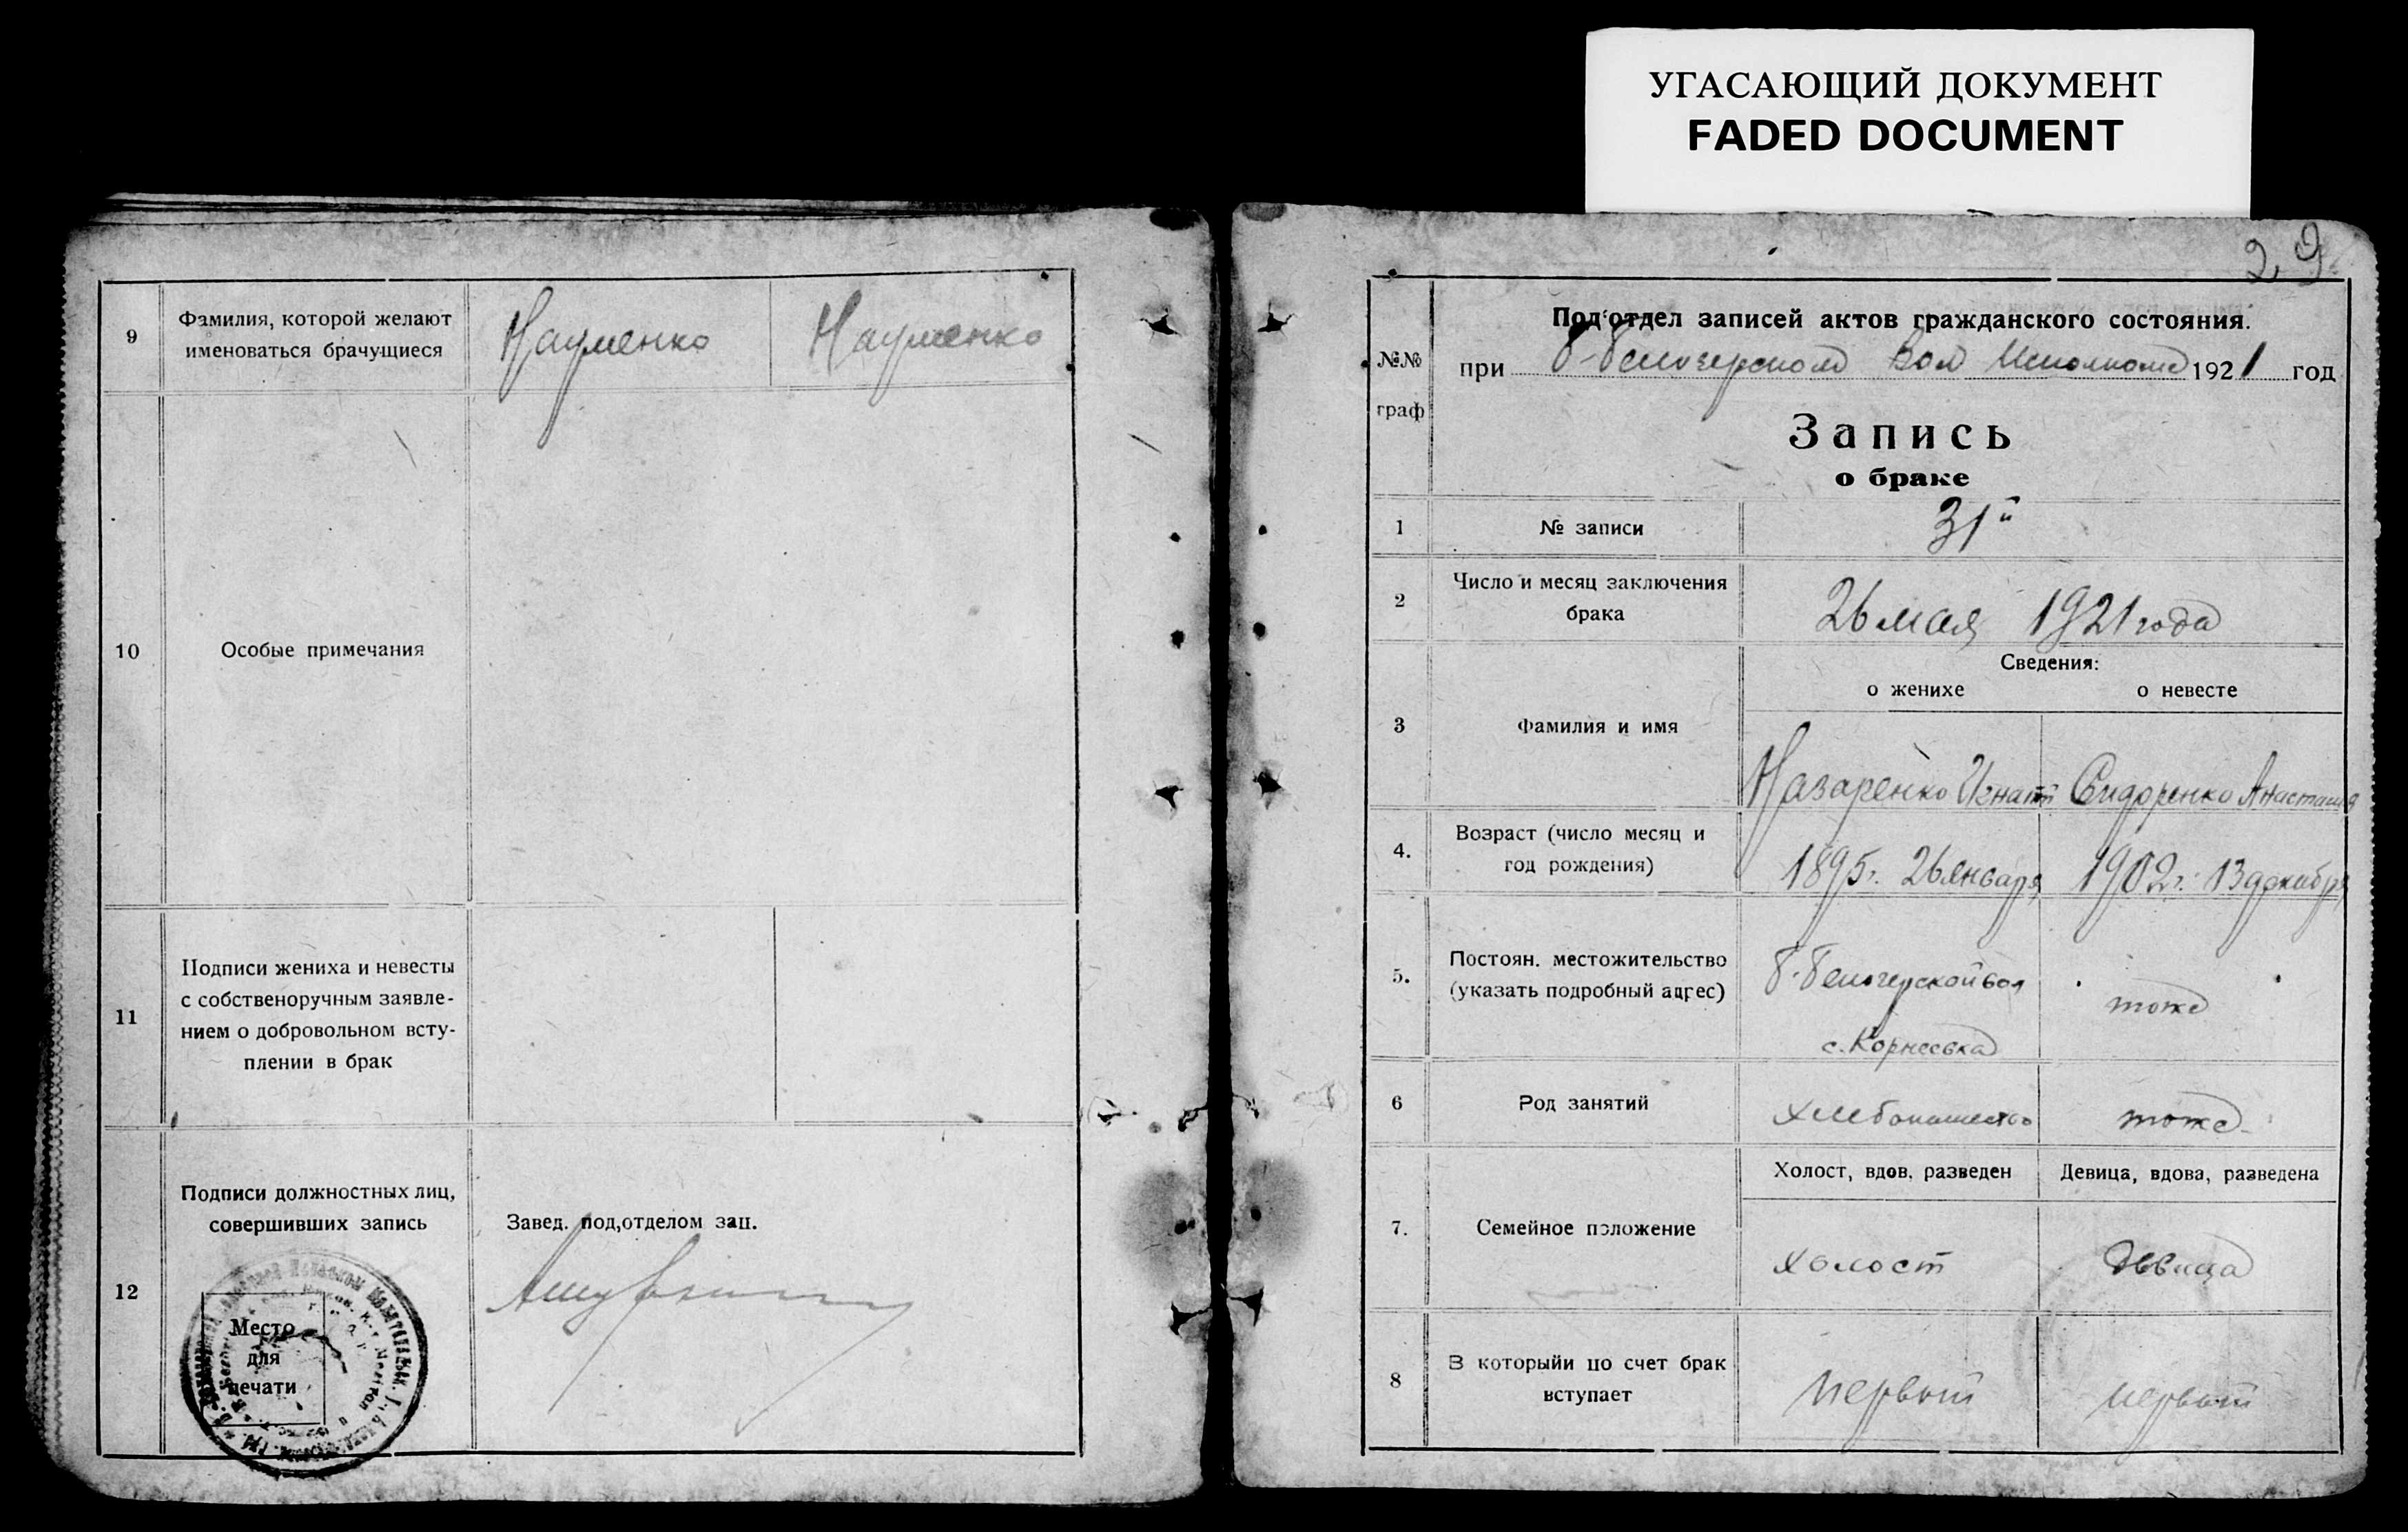 УГАСАЮЩИЙ ДОКУМЕНТ
FADED DOCUMENT
9
Фамилия, которой желают
именоваться брачущиеся
Науменко
Науменко
10
Особые примечания
11
Подписи жениха и невесты
с собственоручным заявле-
нием о добровольном всту-
плении в брак
12
Подписи должностных лиц,
совершивших запись
Завед. под,отделом зап.
Место
для
печати
29
№№
граф
Под'отдел записей актов гражданского состояния.
при Б-Белозерском Вол Исполкоме 1921 год
Запись
о браке
1
№ записи
31й
2
Число и месяц заключения
брака
26 мая 1921 года
Сведения:
о женихе
о невесте
3
Фамилия и имя
Назаренко Игнат
Сидоренко Анастасия
4.
Возраст (число месяц и
год рождения)
1895 г. 26 января
1902 г. 13 декабря
5.
Постоян. местожительство
(указать подробный адрес)
Б-Белозерской вол
с. Корнеевка
тоже
6
Род занятий
хлебопашество
тоже
7.
Семейное положение
Холост, вдов, разведен
Девица, вдова, разведена
холост
девица
8
В которыйи по счет брак
вступает
первый
первый